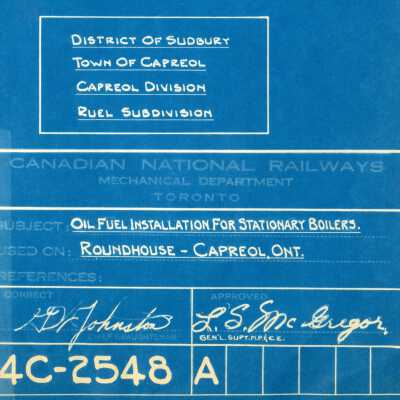 DISTRICT OF SUDBURY
TOWN OF CAPREOL
CAPREOL DIVISION
RUEL SUBDIVISION
CANADIAN NATIONAL RAILWAYS
MECHANICAL DEPARTMENT
TORONTO
SUBJECT: OIL FUEL INSTALLATION FOR STATIONARY BOILERS.
USED ON: ROUNDHOUSE - CAPREOL, ONT.
REFERENCES:
CORRECT
APPROVED
Johnston
L. S. McGregor,
CHIEF DRAUGHTSMAN
GEN'L. SUPT. M.P. & C.E.
4C-2548 A